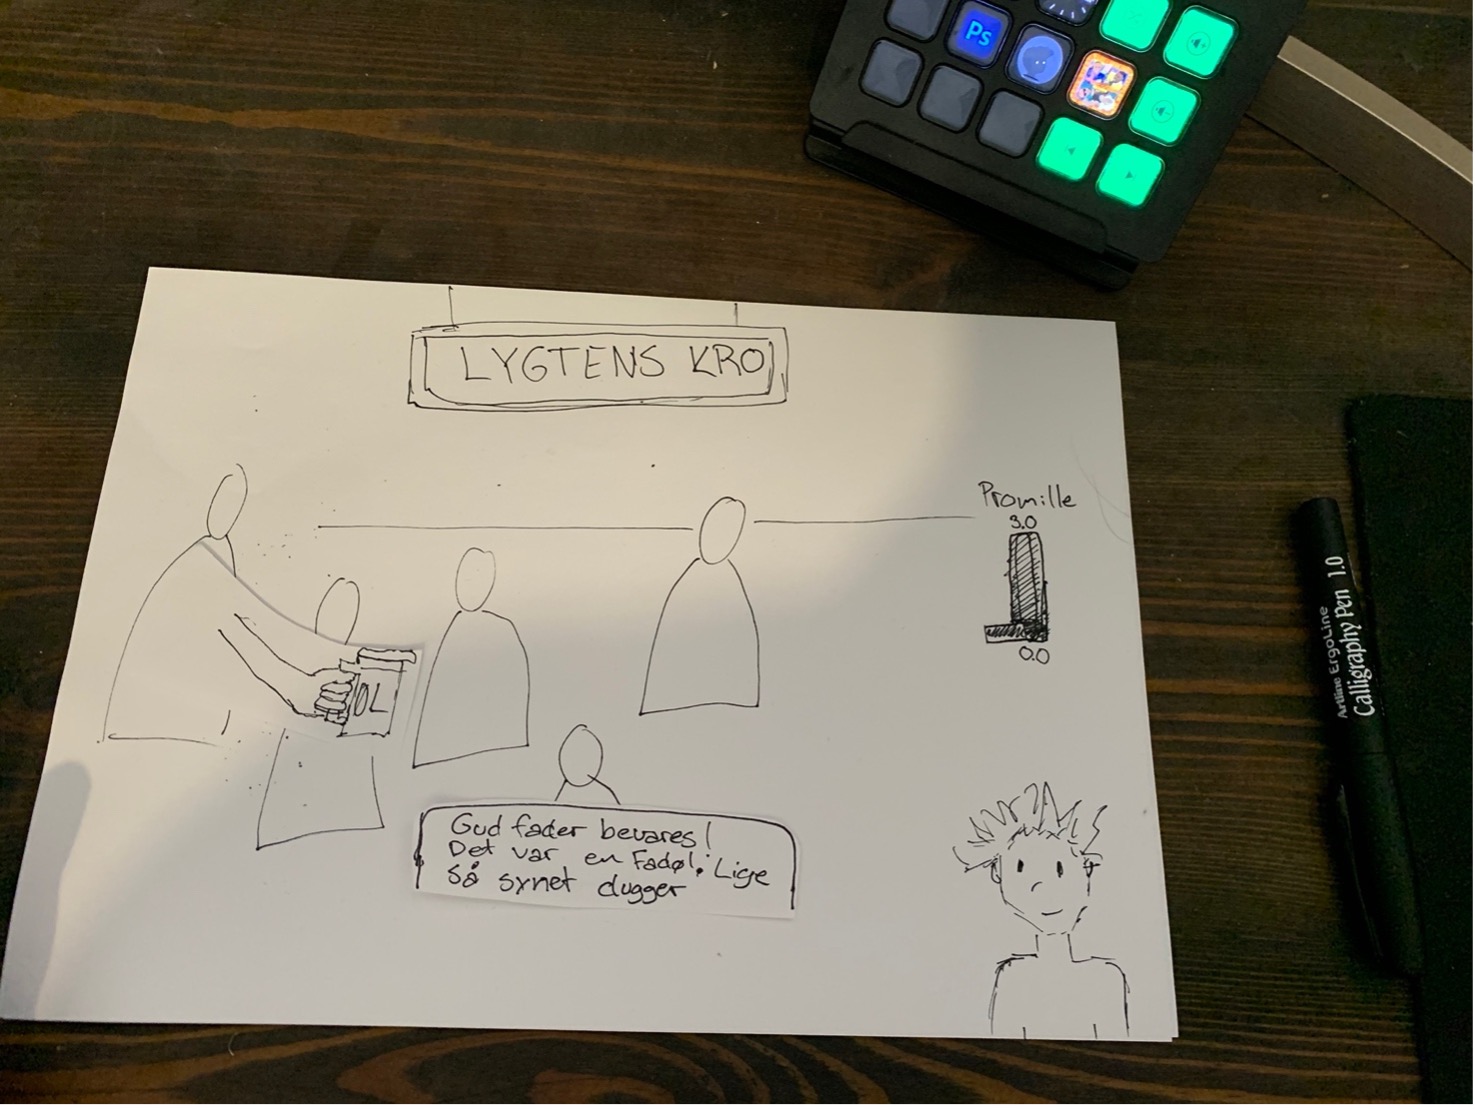 Ps
LYGTENS KRO
Promille
3.0
0.0
ØL
Gud fader bevares!
Det var en Fadøl! Lige
så synet dugger
Artline ErgoLine
Calligraphy Pen 1.0